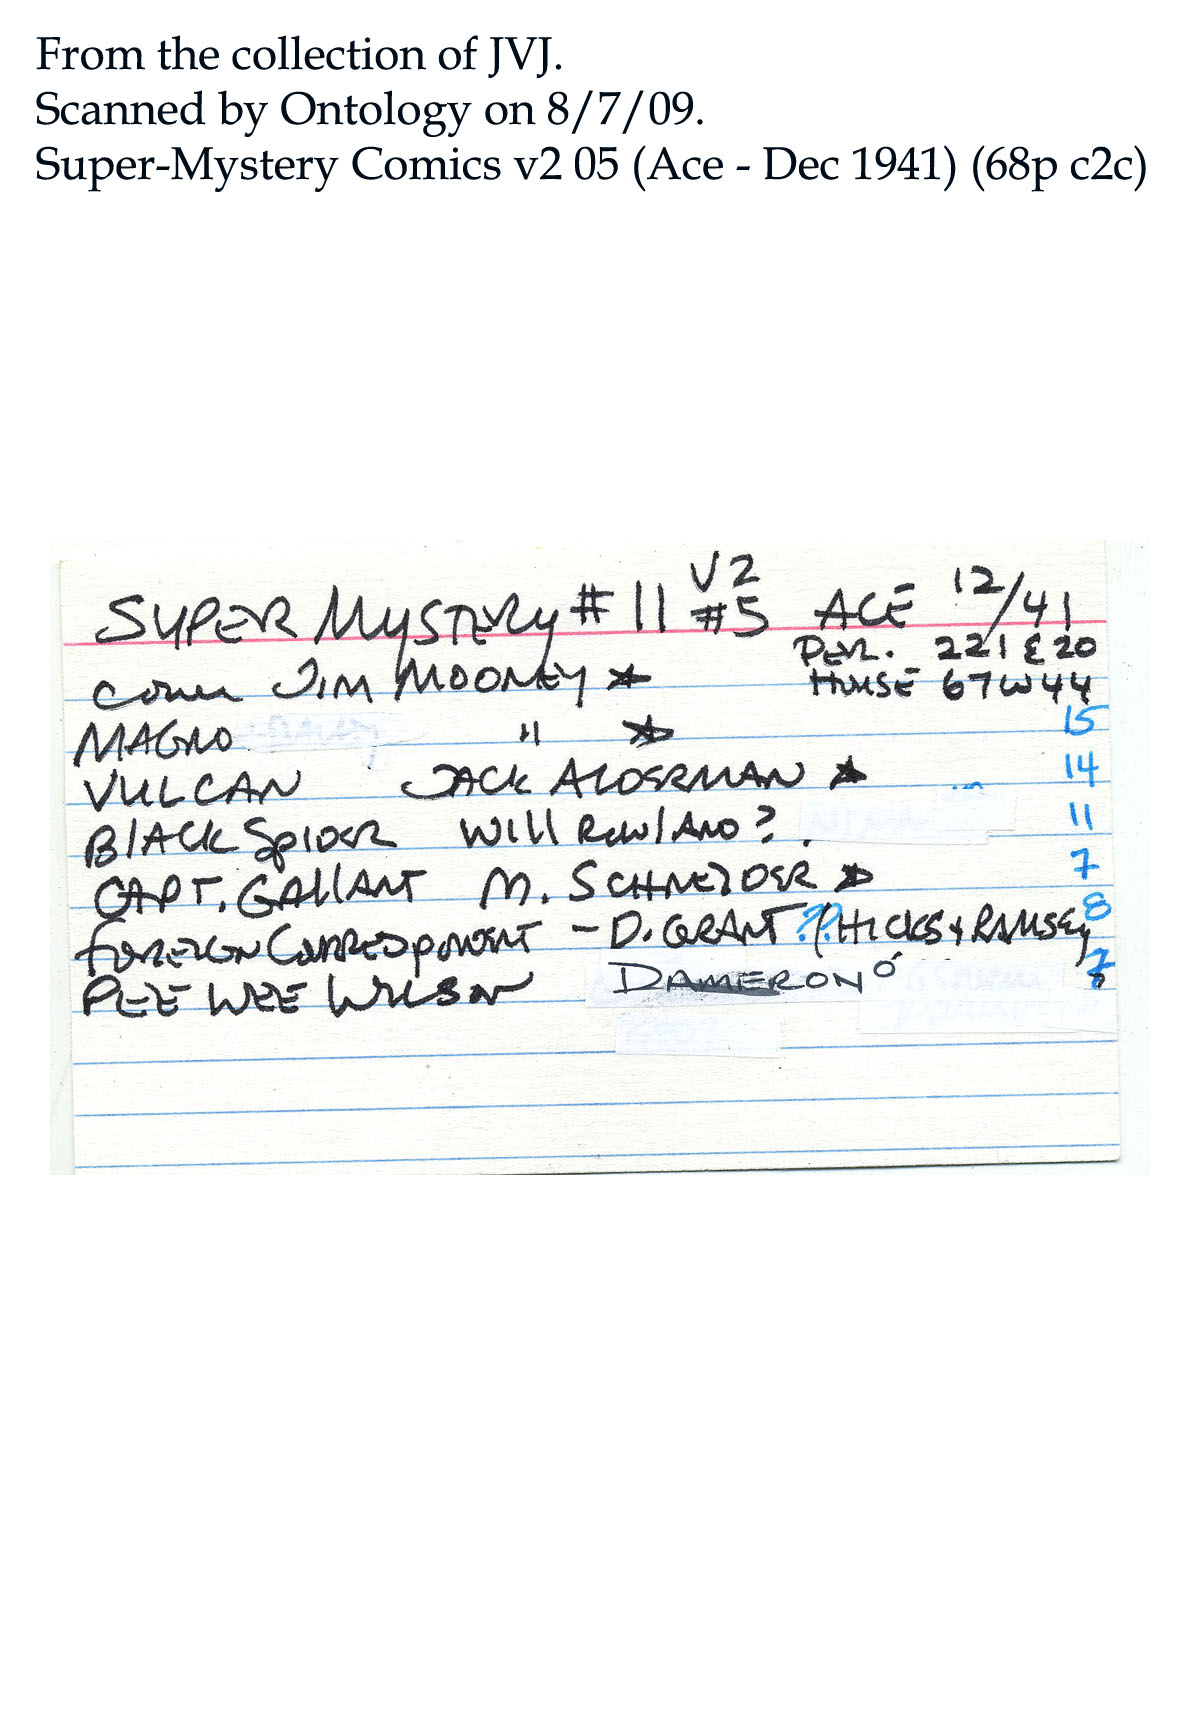 From the collection of JVJ.
Scanned by Ontology on 8/7/09.
Super-Mystery Comics v2 05 (Ace - Dec 1941) (68p c2c)
SUPER MYSTERY #11 V2 #5 ACE 12/41
PER. 221 E 20
COVER JIM MOONEY ★ HOUSE 67W44
MAGNO " ★ 15
VULCAN JACK ALDERMAN ★ 14
BLACK SPIDER WILL ROWLAND? 11
CAPT. GALLANT M. SCHNEIDER ★ 7
FOREIGN CORRESPONDENT - D. GRANT ?? (HICKS & RAMSEY 8
PEE WEE WILSON DAMERON 7